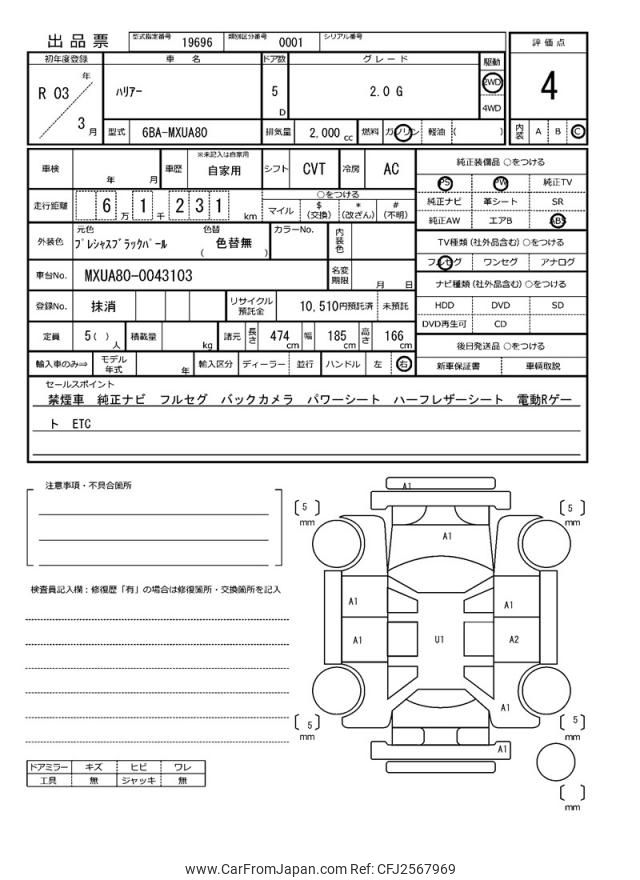 出品票 型式指定番号 19696 類別区分番号 0001 シリアル番号
評価点
初年度登録 車 名 ドア数 グレード 駆動
R 03 年 ハリアー 5 D 2.0 G 2WD 4
4WD
3 月 型式 6BA-MXUA80 排気量 2,000 cc 燃料 ガソリン 軽油 ( ) 内装 A B C
車検 年 月 車歴 ※未記入は自家用 自家用 シフト CVT 冷房 AC 純正装備品 ○をつける
PS PW 純正TV
走行距離 6 万 1 千 2 3 1 km ○をつける 純正ナビ 革シート SR
マイル $ (交換) * (改ざん) # (不明) 純正AW エアB ABS
外装色 元色 プレシャスブラックパール 色替 ( 色替無 ) カラーNo. 内装色 TV種類 (社外品含む) ○をつける
フルセグ ワンセグ アナログ
車台No. MXUA80-0043103 名変期限 月 日 ナビ種類 (社外品含む) ○をつける
登録No. 抹消 リサイクル預託金 10,510円預託済 未預託 HDD DVD SD
DVD再生可 CD
定員 5( ) 人 積載量 kg 諸元 長さ 474 cm 幅 185 cm 高さ 166 cm 後日発送品 ○をつける
輸入車のみ⇒ モデル年式 年 輸入区分 ディーラー 並行 ハンドル 左 右 新車保証書 車輌取説
セールスポイント
禁煙車 純正ナビ フルセグ バックカメラ パワーシート ハーフレザーシート 電動Rゲー
ト ETC
注意事項・不具合箇所
A1
5 mm
5 mm
A1
検査員記入欄：修復歴「有」の場合は修復箇所・交換箇所を記入
A1 A1
A1 U1 A2
A1
5 mm
5 mm
A1
ドアミラー キズ ヒビ ワレ
工具 無 ジャッキ 無
mm
www.CarFromJapan.com Ref: CFJ2567969